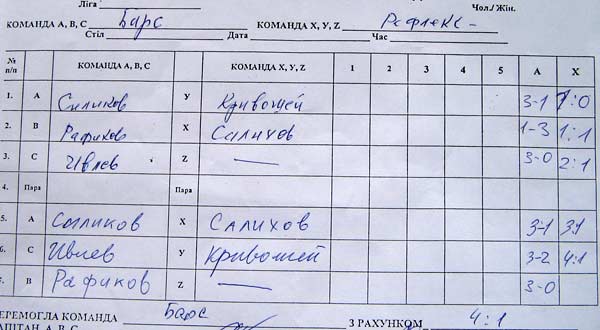 Ліга Чол./ Жін.
КОМАНДА А, В, С Барс КОМАНДА X, У, Z Рафлекс -
Стіл Дата Час
№ п/п КОМАНДА А, В, С КОМАНДА X, У, Z 1 2 3 4 5 А X
1. А Силиков У Кривошей 3-1 1:0
2. В Рафиков X Салихов 1-3 1:1
3. С Ивлев Z — 3-0 2:1
4. Пара Пара
5. А Силиков X Салихов 3-1 3:1
6. С Ивлев У Кривошей 3-2 4:1
7. В Рафиков Z — 3-0
ПЕРЕМОГЛА КОМАНДА Барс З РАХУНКОМ 4:1
КАПІТАН, А, В, С